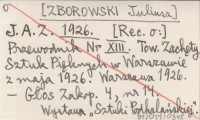 [ZBOROWSKI Juliusz]
J.A.Z. 1926. [Rec. o:]
Przewodnik Nr XIII. Tow. Zachęty
Sztuk Pięknych w Warszawie
z maja 1926. Warszawa 1926.
– Głos Zakop. 4, nr 14.
Wystawa „Sztuki Podhalańskiej".